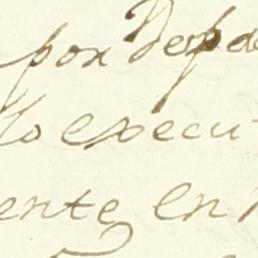 por Desp
lo execu
ente en